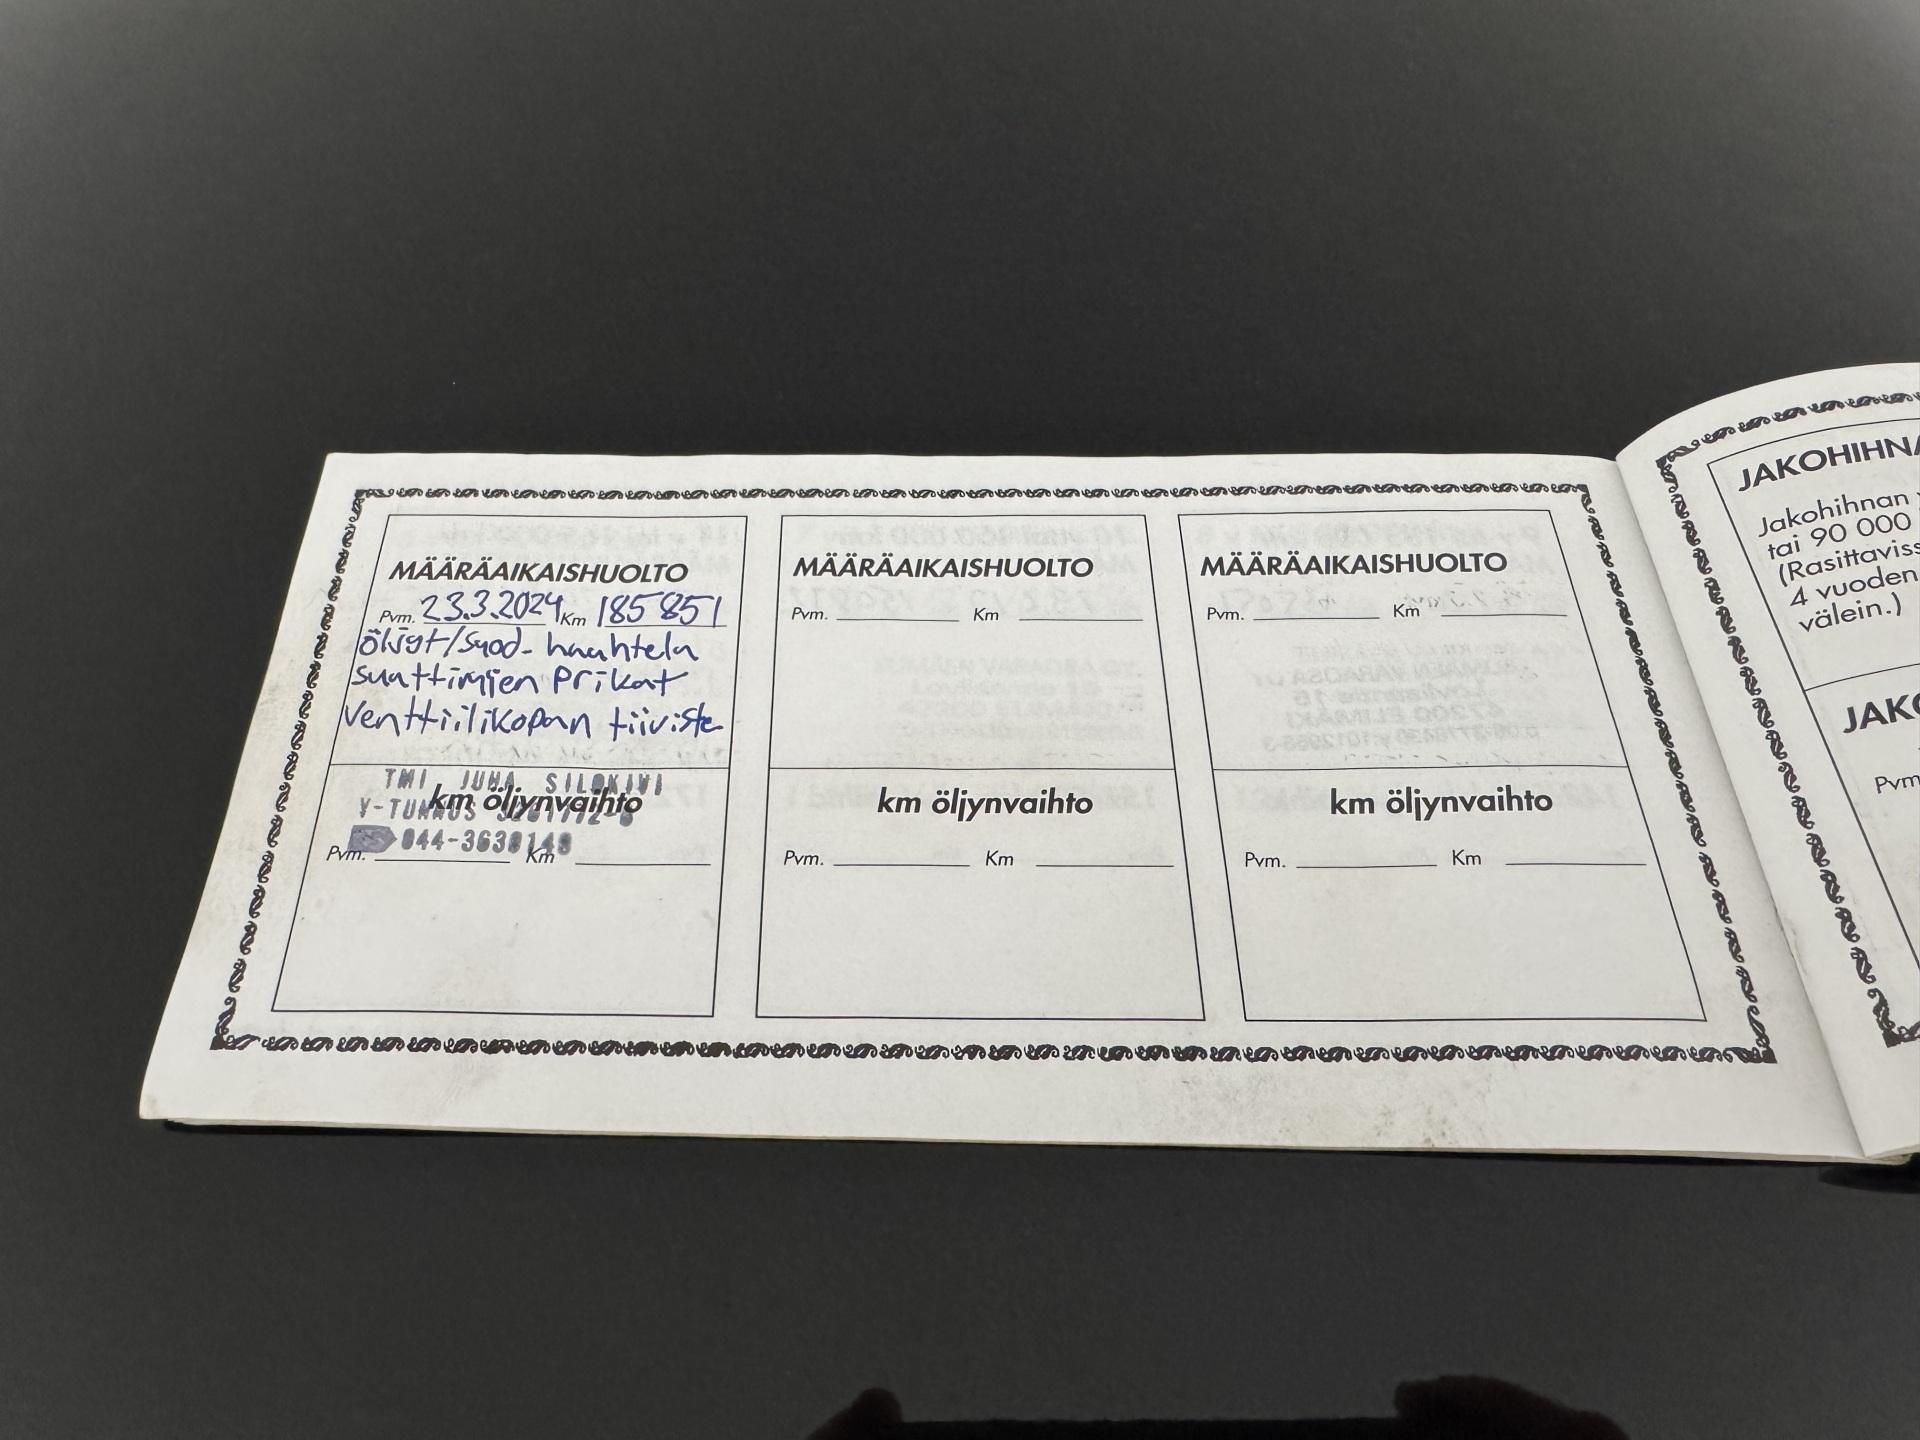 MÄÄRÄAIKAISHUOLTO
Pvm. 23.3.2024 Km 185 851
öljyt/suod- haahtela
suuttimien Prikat
Venttiilikopan tiiviste
TMI JUHA SILOKIVI
Y-TUNNUS
044-3638148
km öljynvaihto
Pvm. Km
MÄÄRÄAIKAISHUOLTO
Pvm. Km
km öljynvaihto
Pvm. Km
MÄÄRÄAIKAISHUOLTO
Pvm. Km
km öljynvaihto
Pvm. Km
JAKOHIHNA
Jakohihnan
tai 90 000
(Rasittaviss
4 vuoden
välein.)
JAKO
Pvm